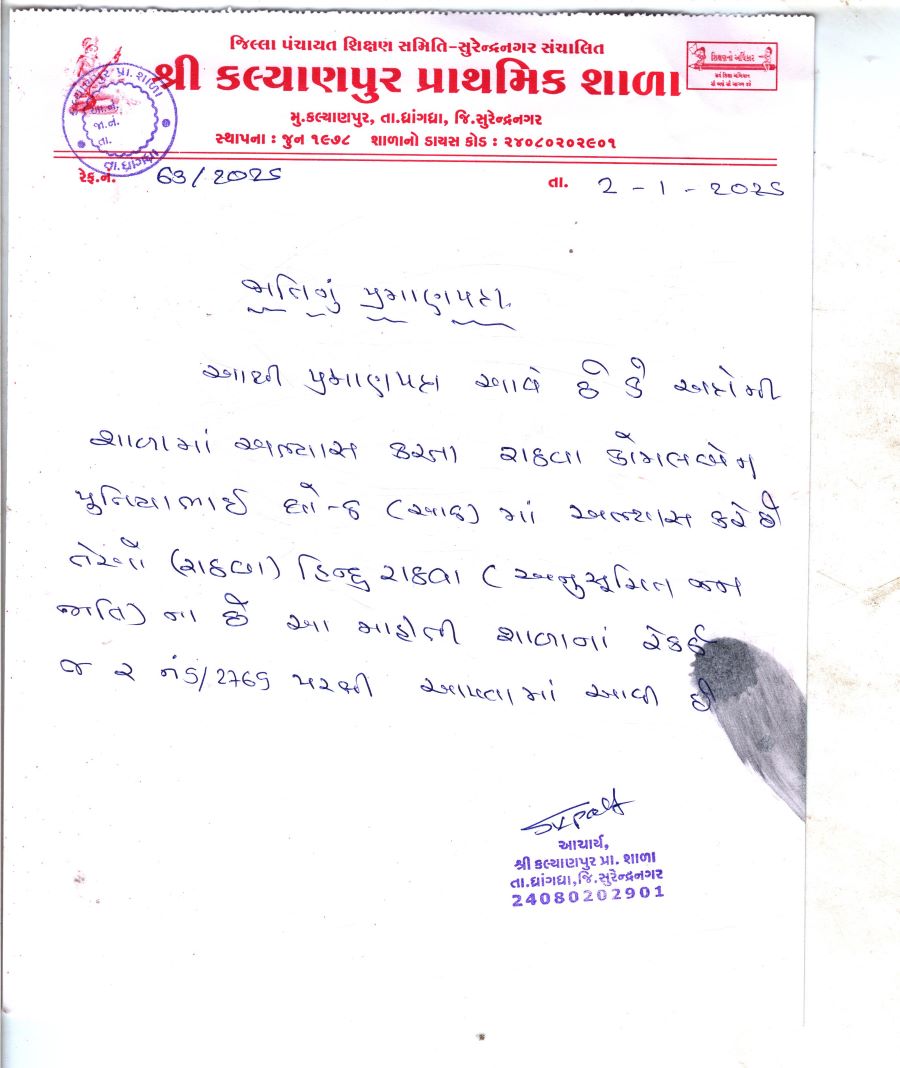 જિલ્લા પંચાયત શિક્ષણ સમિતિ-સુરેન્દ્રનગર સંચાલિત
શ્રી કલ્યાણપુર પ્રાથમિક શાળા
શિક્ષણનો અધિકાર
સર્વ શિક્ષા અભિયાન
મુ.કલ્યાણપુર, તા.ધ્રાંગધ્રા, જિ.સુરેન્દ્રનગર
સ્થાપના : જુન ૧૯૭૮ શાળાનો ડાયસ કોડ : ૨૪૦૮૦૨૦૨૯૦૧
કલ્યાણપુર પ્રા. શાળા
આ.નં.
જા.નં.
તા.
તા.ધ્રાંગધ્રા
રેફ.નં. 63/2025 તા. 2-1-2025
જાતિનું પ્રમાણપત્ર
આથી પ્રમાણપત્ર આવે છે કે અત્રેની
શાળામાં અભ્યાસ કરતા રાઠવા કોમલબેન
ધો-8 (આઠ) માં અભ્યાસ કરે છે
તેઓ (રાઠવા) હિન્દુ રાઠવા (અનુસૂચિત જન
જાતિ) ના છે આ માહીતી શાળાનાં રેકર્ડ
જ ર નંડ/2769 પરથી આપવામાં આવી છે
આચાર્ય,
શ્રી કલ્યાણપુર પ્રા. શાળા
તા.ધ્રાંગધ્રા,જિ.સુરેન્દ્રનગર
24080202901